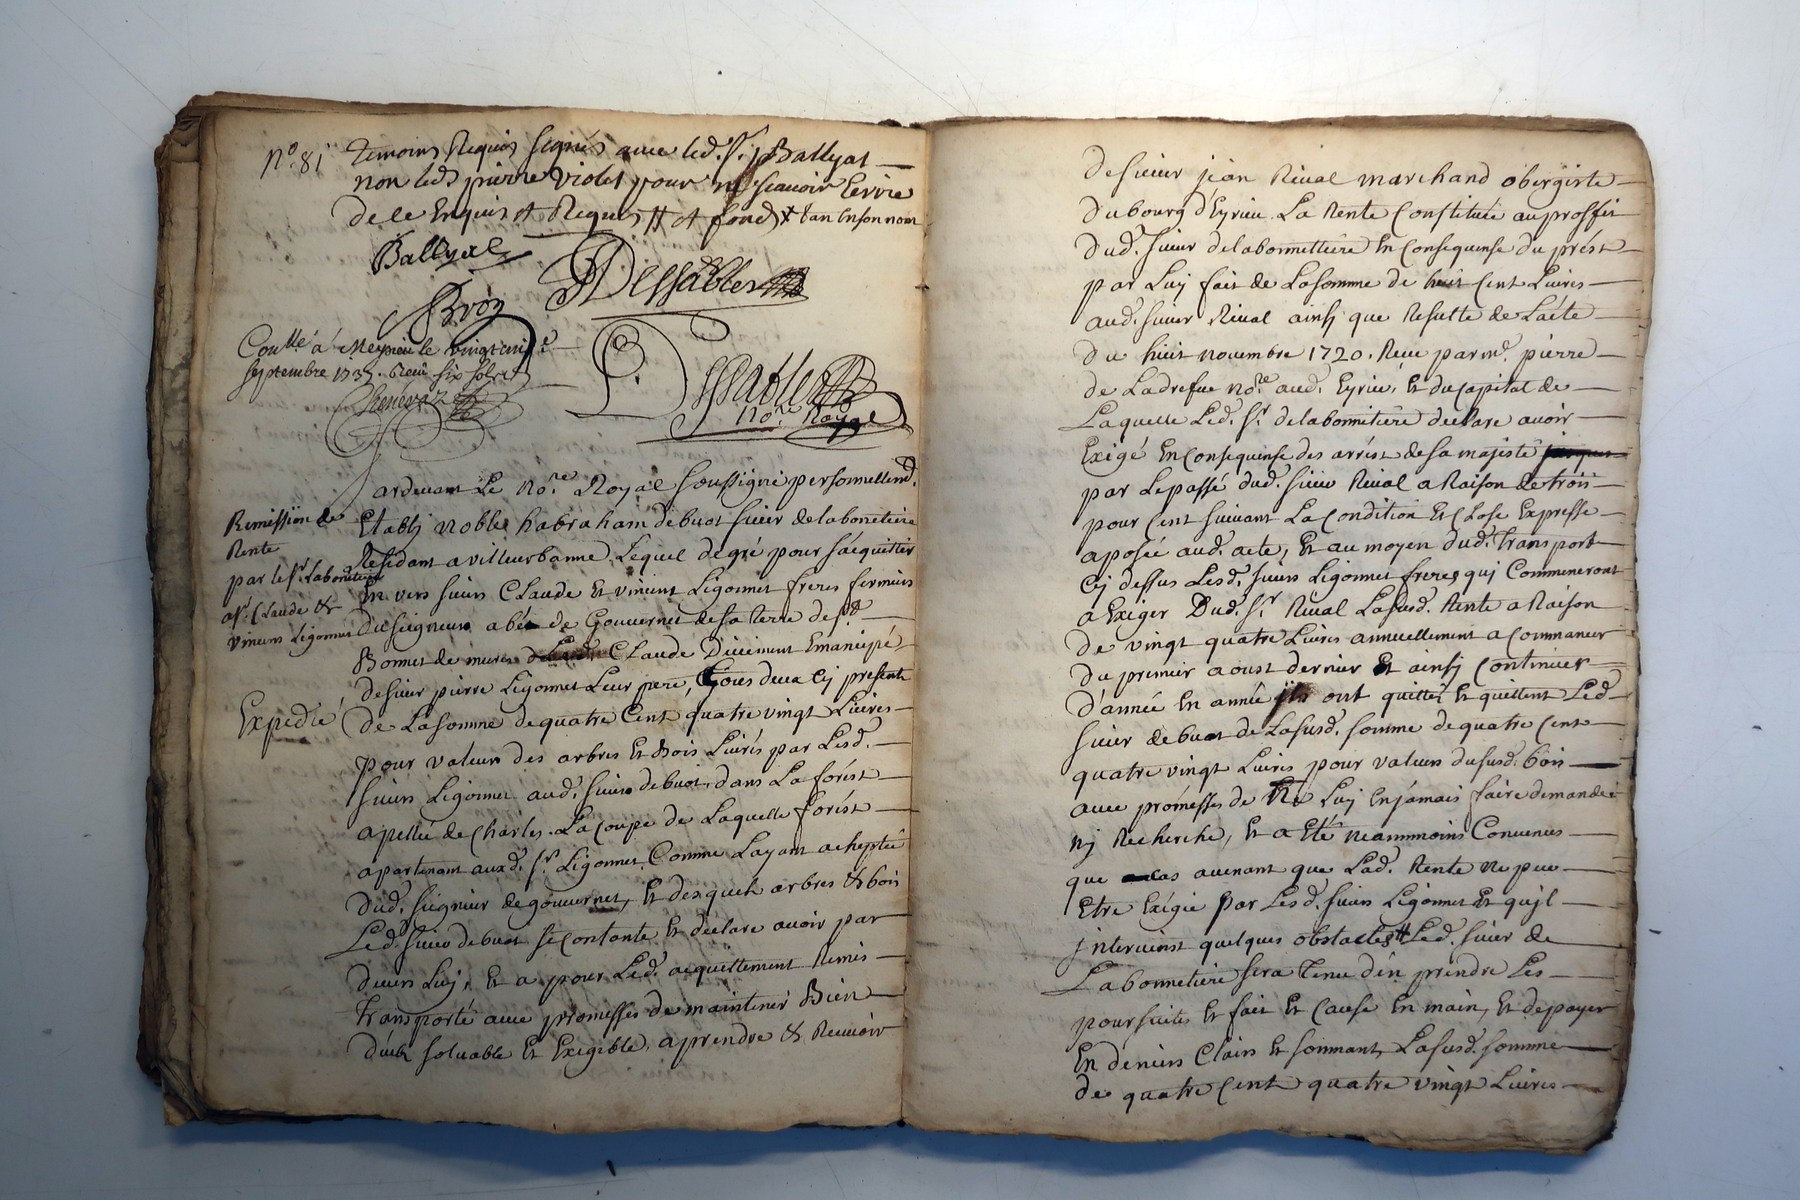 N.º 81
temoins Requis signés avec led. Sr. Ballyat
non led. pierre Violet pour ne scavoir Ecrire
de ce Enquis et Requis # et fonds x tan en son nom
Ballyat
DDessables
Broz
Conllé á Meyzieu le vingt cinq
septembre 1737. Reçu six sols
Chenevaz
Dessables
No.re Royal
Pardevant Le No.re Royal soussigné personnellemt.
Etably noble habraham debuot sieur de labonnetiere
Residant a villeurbanne. Lequel de gré pour s'acquitter
En vers sieurs Claude et vincent Ligonnet freres fermiers
du seigneur abé de Gouvernet de sa terre de st.
Bonnet de mures Claude Düement Emancipé
de sieur pierre Ligonnet Leur pere, tous deux Cy presents
De La somme de quatre Cent quatre vingt Livres
pour valeur des arbres et Bois Livrés par Lesd.
sieurs Ligonnet aud. sieur debuot, dans La forést
apellée de Charles. La Coupe de Laquelle forést
apartenant auxd. srs Ligonnet Comme Layant acheptée
dud. seigneur de gouvernet, Et desquels arbres et bois
Led. sieur debuot se Contante Et declare avoir par
devers Luy, Et a pour Led. acquittement Remis
transporté avec promesses de maintenir Bien
düe solvable Et Exigible, a prendre et Recevoir
Remission de
Rente
par le sr. Labonnetiere
a sr. Claude et
vincent Ligonnet
Expedié
de sieur jean Rival marchand obergiste
du bourg d'Eyrieu. La Rente Constituée au proffit
dud. sieur de labonnettiere En Consequense du prést
par Luy fait de La somme de huit Cent Livres
aud. sieur Rival ainsy que Resulte de L'acte
du huit novembre 1720. Reçu par me. pierre
de Ladrefue No.re aud. Eyrieu, Et du Capital de
Laquelle Led. Sr. de labonnetiere declare avoir
Exigé En Consequense des arrést de sa majesté
par Le passé dud. sieur Rival a Raison de trois
pour Cent suivant La Condition Et Close Expresse
aposée aud. acte, Et au moyen dud. transport
Cy dessus Lesd. sieurs Ligonnet freres qui Commenceront
a Exiger Dud. Sr. Rival La susd. Rente a Raison
de vingt quatre Livres annuellement a Commancer
du premier aoust dernier Et ainsy Continuer
d'année En année ils ont quitté Et quittent Led.
sieur debuot de La susd. somme de quatre Cent
quatre vingt Livres pour valeur du susd. bois
avec promesses de Ne Luy En jamais faire demande
ny Recherche, Et a Eté neammoins Convenus
que Cas avenant que Lad. Rente ne peu
Etre Exigée par Lesd. sieurs Ligonnet Et qu'il
jntervint quelques obstacles # Led. sieur de
Labonnetiere sera tenu d'en prendre Les
poursuites Et fait Et Cause En main, Et de payer
En deniers Clairs Et sonnant, La susd. somme
de quatre Cent quatre vingt Livres